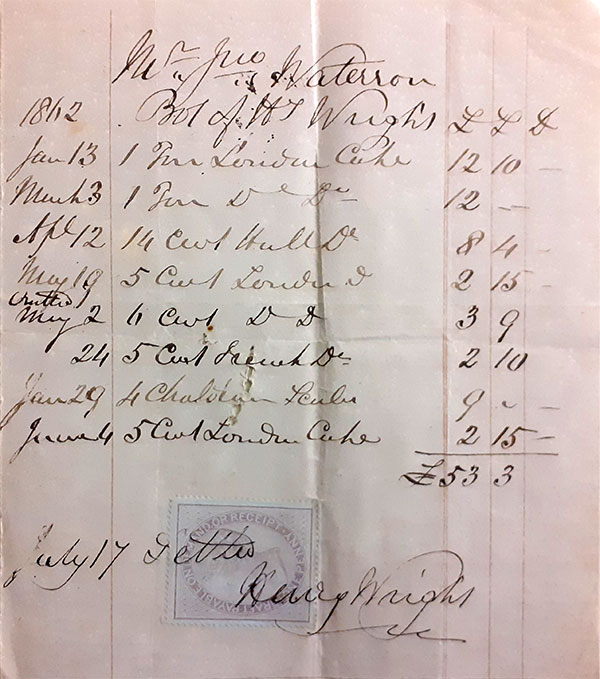 Mr Jno Waterson
1862 Bot of H Wright £ S D
Jan 13 1 Ton London Cake 12 10 –
March 3 1 Ton Do Do 12 – 
Apl 12 14 Cwt Hull Do 8 4 –
May 19 5 Cwt London D 2 15 –
omitted
May 2 6 Cwt D D 3 9
24 5 Cwt French Do 2 10
Jan 29 4 9 – –
June 4 5 Cwt London Cake 2 15 –
£53 3
July 17 Settled
Henry Wright
OR RECEIPT